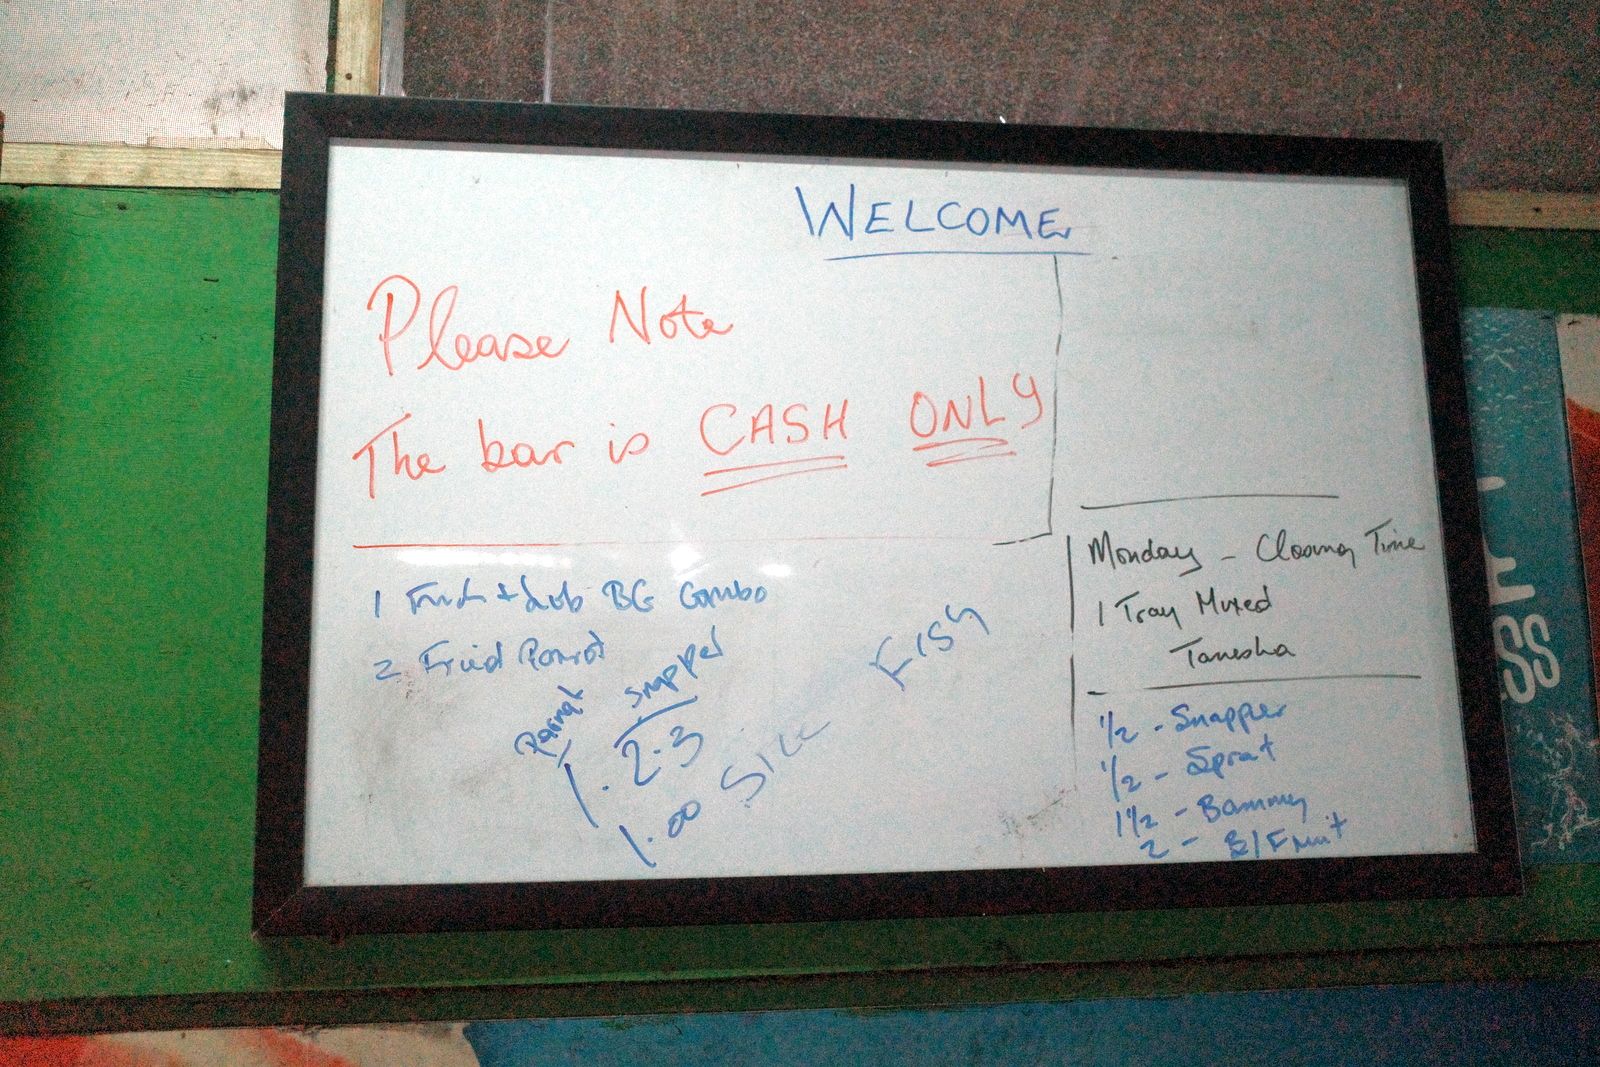 WELCOME
Please Note
The bar is CASH ONLY
1 BG Combo
2 Fried Parrot
Parrot
Snapper
1. 2.3
1.00 Size Fish
Monday - Closing Time
1 Tray Mixed
Tanesha
1/2 - Snapper
1/2 - Sprat
1 1/2 - Bammy
2 - B/Fruit
SS